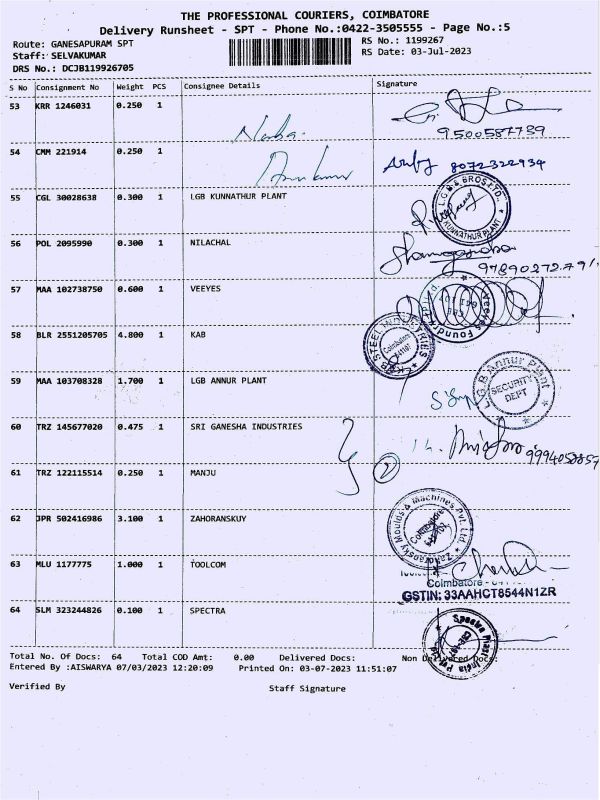 THE PROFESSIONAL COURIERS, COIMBATORE
Delivery Runsheet - SPT - Phone No.:0422-3505555 - Page No.:5
Route: GANESAPURAM SPT
RS No.: 1199267
Staff: SELVAKUMAR
RS Date: 03-Jul-2023
DRS No.: DCJB119926705
S No Consignment No Weight PCS Consignee Details Signature
53 KRR 1246031 0.250 1
9500587739
54 CMM 221914 0.250 1
8072322934
55 CGL 30028638 0.300 1 LGB KUNNATHUR PLANT
L.G.B & BROS LTD., KUNNATHUR PLANT
56 POL 2095990 0.300 1 NILACHAL
57 MAA 102738750 0.600 1 VEEYES
Veeyes Foundry
58 BLR 2551205705 4.800 1 KAB
STEEL INDUSTRIES
Coimbatore
59 MAA 103708328 1.700 1 LGB ANNUR PLANT
L.G.B. Annur Plant
SECURITY
DEPT
60 TRZ 145677020 0.475 1 SRI GANESHA INDUSTRIES
9994058857
61 TRZ 122115514 0.250 1 MANJU
2
62 JPR 502416986 3.100 1 ZAHORANSKUY
Zahoransky Moulds & Machines Pvt. Ltd.
Coimbatore
63 MLU 1177775 1.000 1 TOOLCOM
Coimbatore -
GSTIN: 33AAHCT8544N1ZR
64 SLM 323244826 0.100 1 SPECTRA
Spectra Plast India Pvt Ltd
Total No. Of Docs: 64 Total COD Amt: 0.00 Delivered Docs: Non Delivered Docs:
Entered By :AISWARYA 07/03/2023 12:20:09 Printed On: 03-07-2023 11:51:07
Verified By Staff Signature